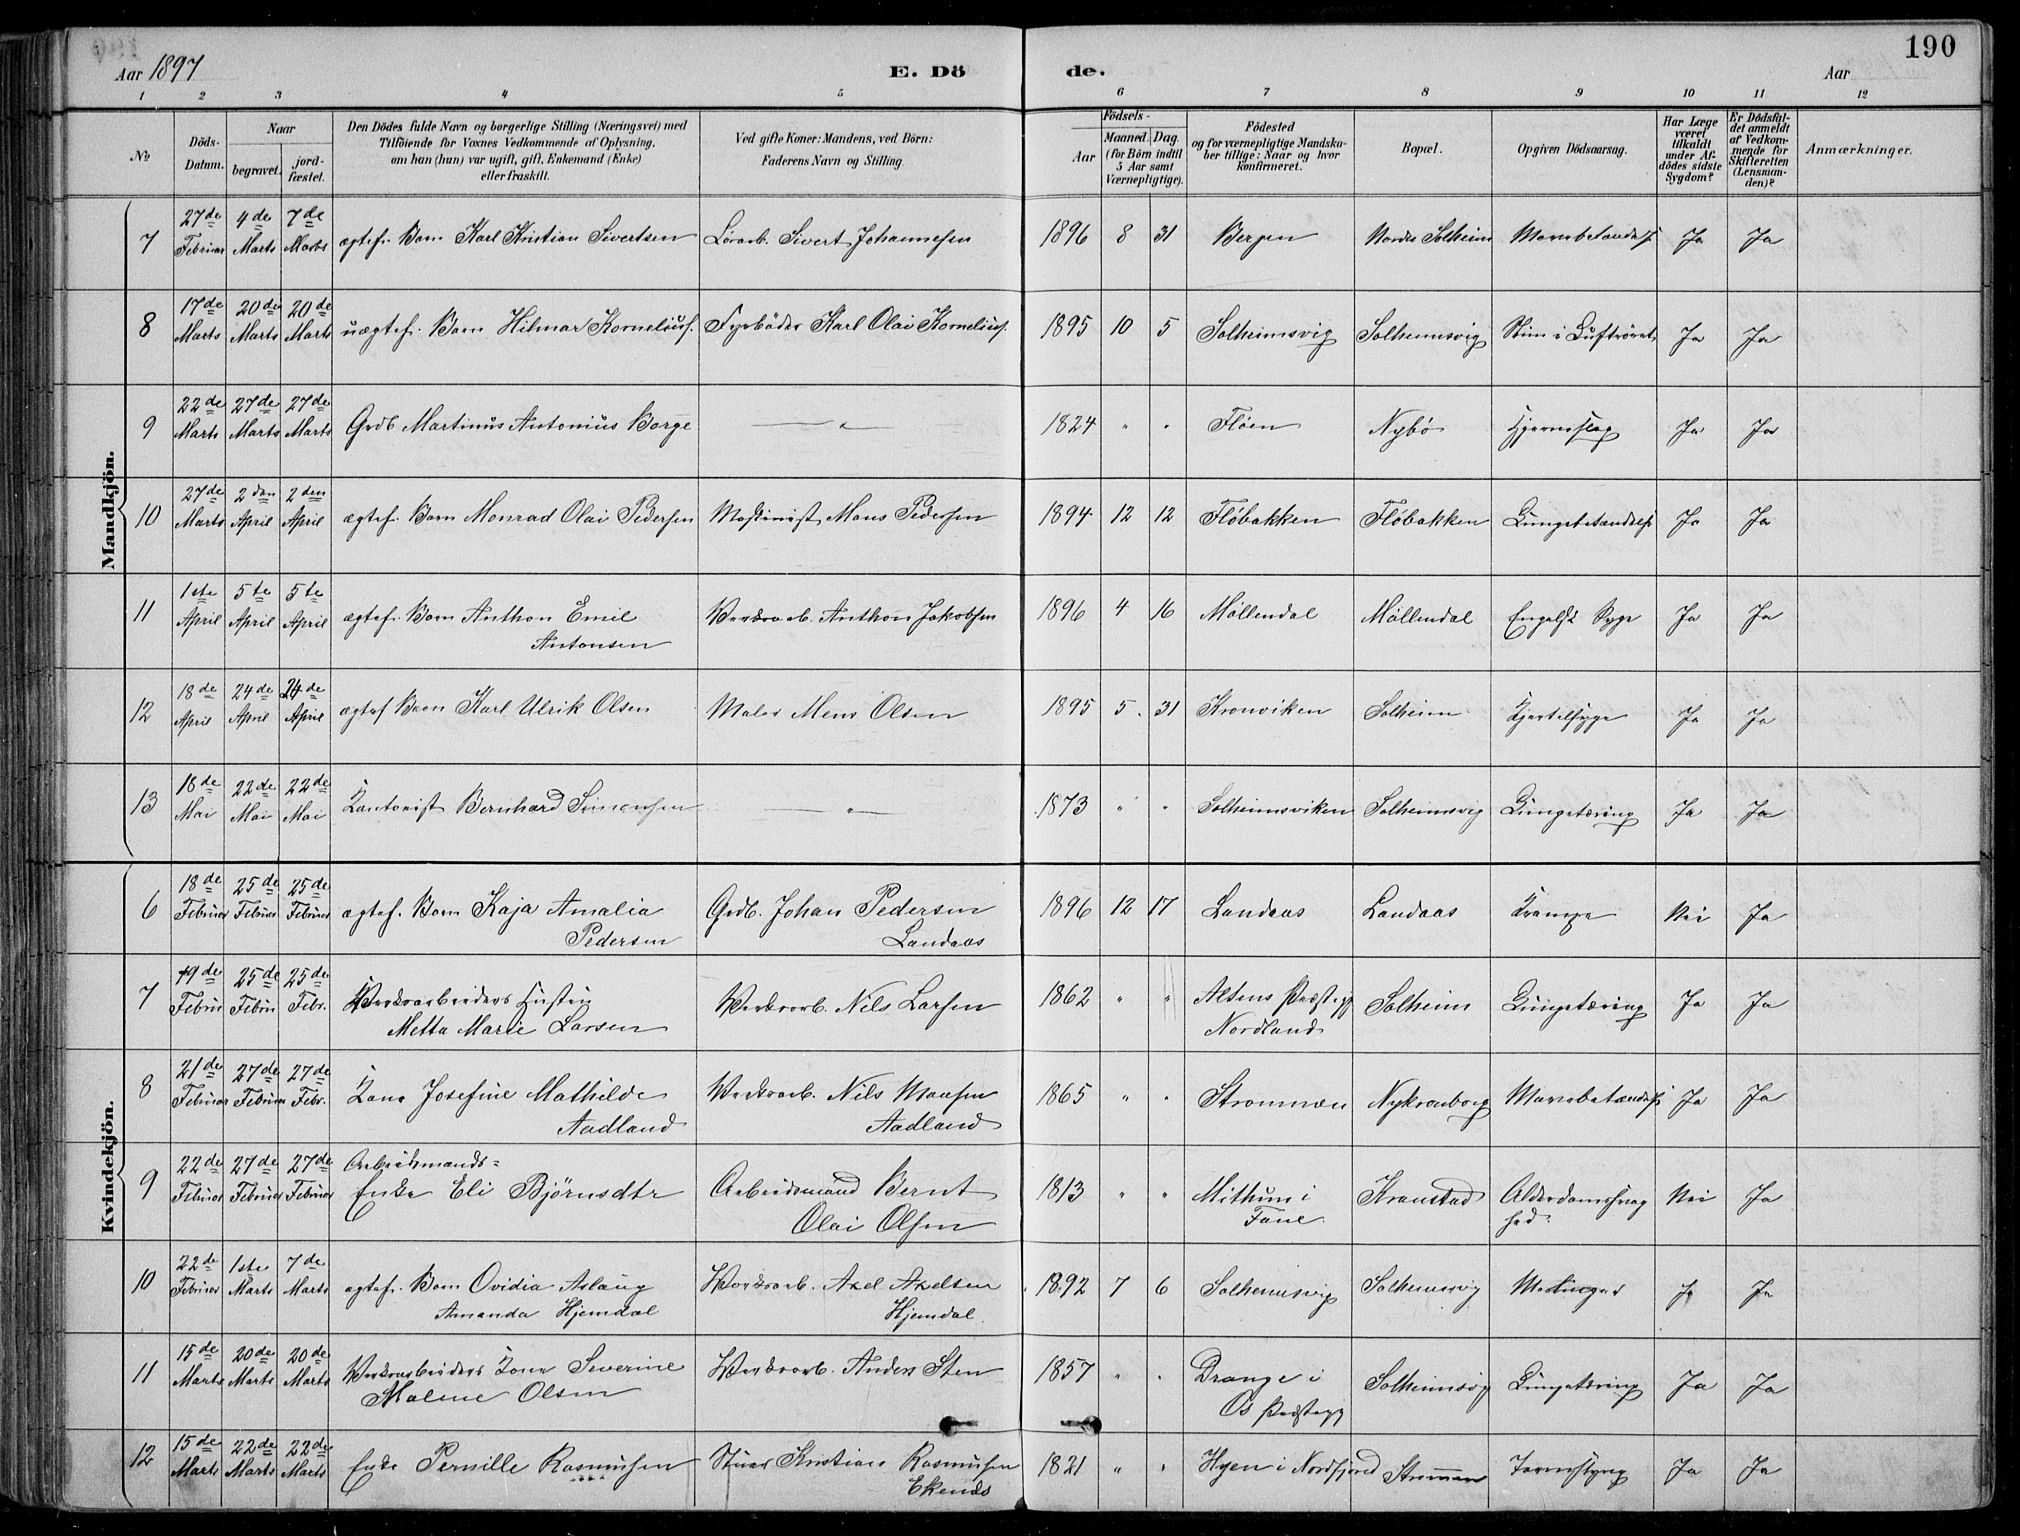 Aar 1897
E. Dö
de.
Aar
190
1 2 3 4 5 6 7 8 9 10 11 12
No
Döds-Datum.
Naar
begravet.
jord-fæstet.
Den Dödes fulde Navn og borgerlige Stilling (Næringsvei) med
Tilföiende for Voxnes Vedkommende af Oplysning,
om han (hun) var ugift, gift, Enkemand (Enke)
eller fraskilt.
Ved gifte Koner: Mandens, ved Börn:
Faderens Navn og Stilling.
Aar
Födsels-
Maaned. Dag.
(for Börn indtil
5 Aar samt
Værnepligtige).
Födested
og for værnepligtige Mandska-
ber tillige: Naar og hvor
konfirmeret.
Bopæl.
Opgiven Dödsaarsag.
Har Læge
været
tilkaldt
under Af-
dödes sidste
Sygdom?
Er Dödsfal-
det anmeldt
af Vedkom-
mende for
Skifteretten
(Lensman-
den)?
Anmærkninger.
Mandkjön.
7 27de Februar 4de Marts 7de Marts ægtef. Barn Karl Kristian Sivertsen Sivert Johannesen 1896 8 31 Bergen Nordre Solheim Mavebetændelse Ja Ja
8 17de Marts 20de Marts 20de Marts uægtef. Barn Hilmar Korneliusf. Fyrböder Karl Olai Korneliusf. 1895 10 5 Solheimsvig Solheimsvig i Luftröret Ja Ja
9 22de Marts 27de Marts 27de Marts Grdb Martinus Antonius Borge — " — 1824 " " Fløen Nybø Hjerneslag Ja Ja
10 27de Marts 2den April 2den April ægtef. Barn Monrad Olai Pedersen Maskinist Mons Pedersen 1894 12 12 Fløbakken Fløbakken Lungebetændelse Ja Ja
11 1ste April 5te April 5te April ægtef. Barn Anthon Emil
Antonsen Værksarb. Anthon Jakobsen 1896 4 16 Møllendal Møllendal Engelsk Syge Ja Ja
12 18de April 24de April 24de April ægtef Barn Karl Ulrik Olsen Maler Mons Olsen 1895 5 31 Kronviken Solheim Kjertelsyge Ja Ja
13 18de Mai 22de Mai 22de Mai Kontorist Bernhard Simensen — " — 1873 " " Solheimsviken Solheimsvig Lungetæring Ja Ja
Kvindekjön.
6 18de Februar 25de Februar 25de Februar ægtef. Barn Kaja Amalia
Pedersen Grdb. Johan Pedersen
Landaas 1896 12 17 Landaas Landaas Krampe Nei Ja
7 19de Februar 25de Februar 25de Febr. Værksarbeiders Hustru
Metta Marie Larsen Værksarb. Nils Larsen 1862 " " Altens Præstegj
Nordland Solheim Lungetæring Ja Ja
8 21de Februar 27de Februar 27de Febr. Kone Josefine Mathilde
Aadland Værksarb. Nils Monsen
Aadland 1865 " " Strømmen Nykronborg Mavebetændelse Ja Ja
9 22de Februar 27de Februar 27de Februar Arbeidsmands-
Enke Eli Björnsdtr Arbeidsmand Bernt
Olai Olsen 1813 " " Mithun i
Fane Kronstad Alderdomssvag
hed. Nei Ja
10 22de Februar 1ste Marts 7de Marts ægtef. Barn Ovidia Aslaug
Amanda Hjemdal Værksarb. Axel Axelsen
Hjemdal 1892 7 6 Solheimsvig Solheimsvig Ja Ja
11 15de Marts 20de Marts 20de Marts Værksarbeiders Kone Severine
Malene Olsen Værksarb. Anders Sten 1857 " " Drange i
Os Præstegj Solheimsvig Lungetæring Ja Ja
12 15de Marts 22de Marts 22de Marts Enke Pernille Rasmussen Kristian Rasmussen
Ekenæs 1821 " " Hyen i Nordfjord Strømmen Ja Ja